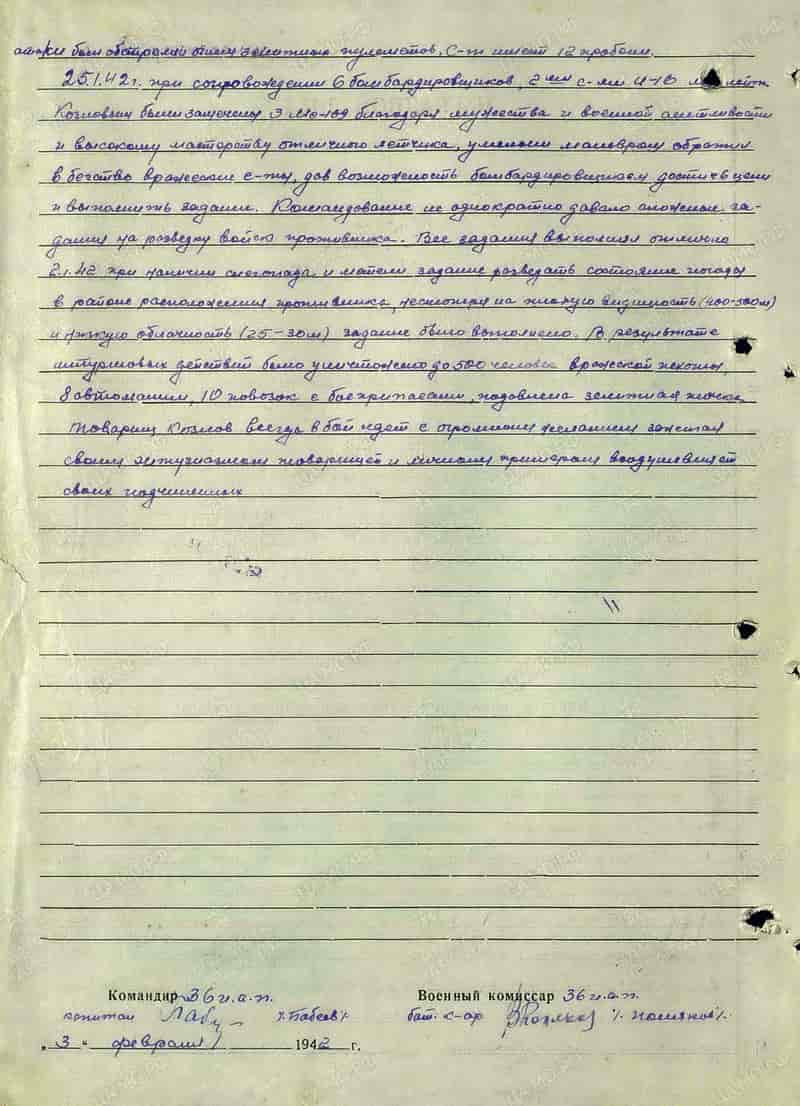 атаки был обстрелян огнем зенитных пулеметов. С-т имеет 12 пробоин.
25.1.42 г. при сопровождении 6 бомбардировщиков, с-ми И-16 летч.
Козловым были замечены 3 Ме-109 благодаря мужества и военной
и высокому мастерству отличного летчика, умелым маневром обратил
в бегство вражеские с-ты, дав возможность бомбардировщикам достичь цели
и выполнить задание. Командование не однократно давало сложные за-
дания на разведку войск противника. Все задания выполнял отлично
2.1.42 при наличии снегопада и метели задание разведать состояние погоды
в районе расположения противника, несмотря на видимость (400-500 м)
и низкую облачность (25-30 м) задание было выполнено. В результате
штурмовых действий было уничтожено до 500 человек вражеской пехоты,
8 автомашин, 10 повозок с боеприпасами, подавлена зенитная точка.
Товарищ Козлов всегда в бой идет с огромным желанием зажигая
своим энтузиазмом товарищей и личным примером воодушевляет
своих подчиненных
Командир 36 и.а.п. Военный комиссар 36 и.а.п.
капитан бат. к-ар
„3“ февраля 1942 г.